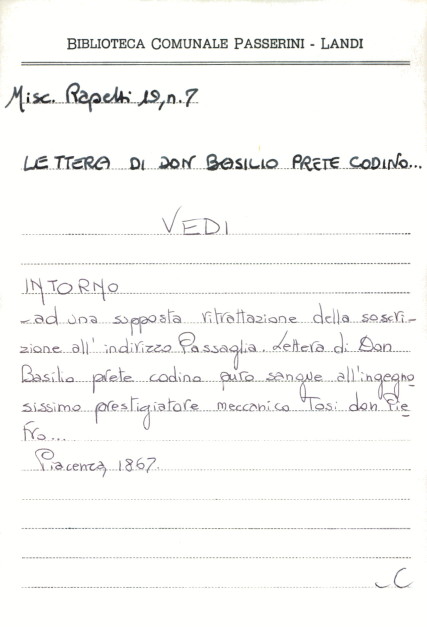 BIBLIOTECA COMUNALE PASSERINI - LANDI
Misc. Rapetti 19, n. 7
LETTERA DI DON BASILIO PRETE CODINO...
VEDI
INTORNO
- ad una supposta ritrattazione della soscri-
zione all'indirizzo Passaglia. Lettera di Don
Basilio prete codino puro sangue all'ingegno
sissimo prestigiatore meccanico Tosi don Pie
tro...
Piacenza, 1867.
C